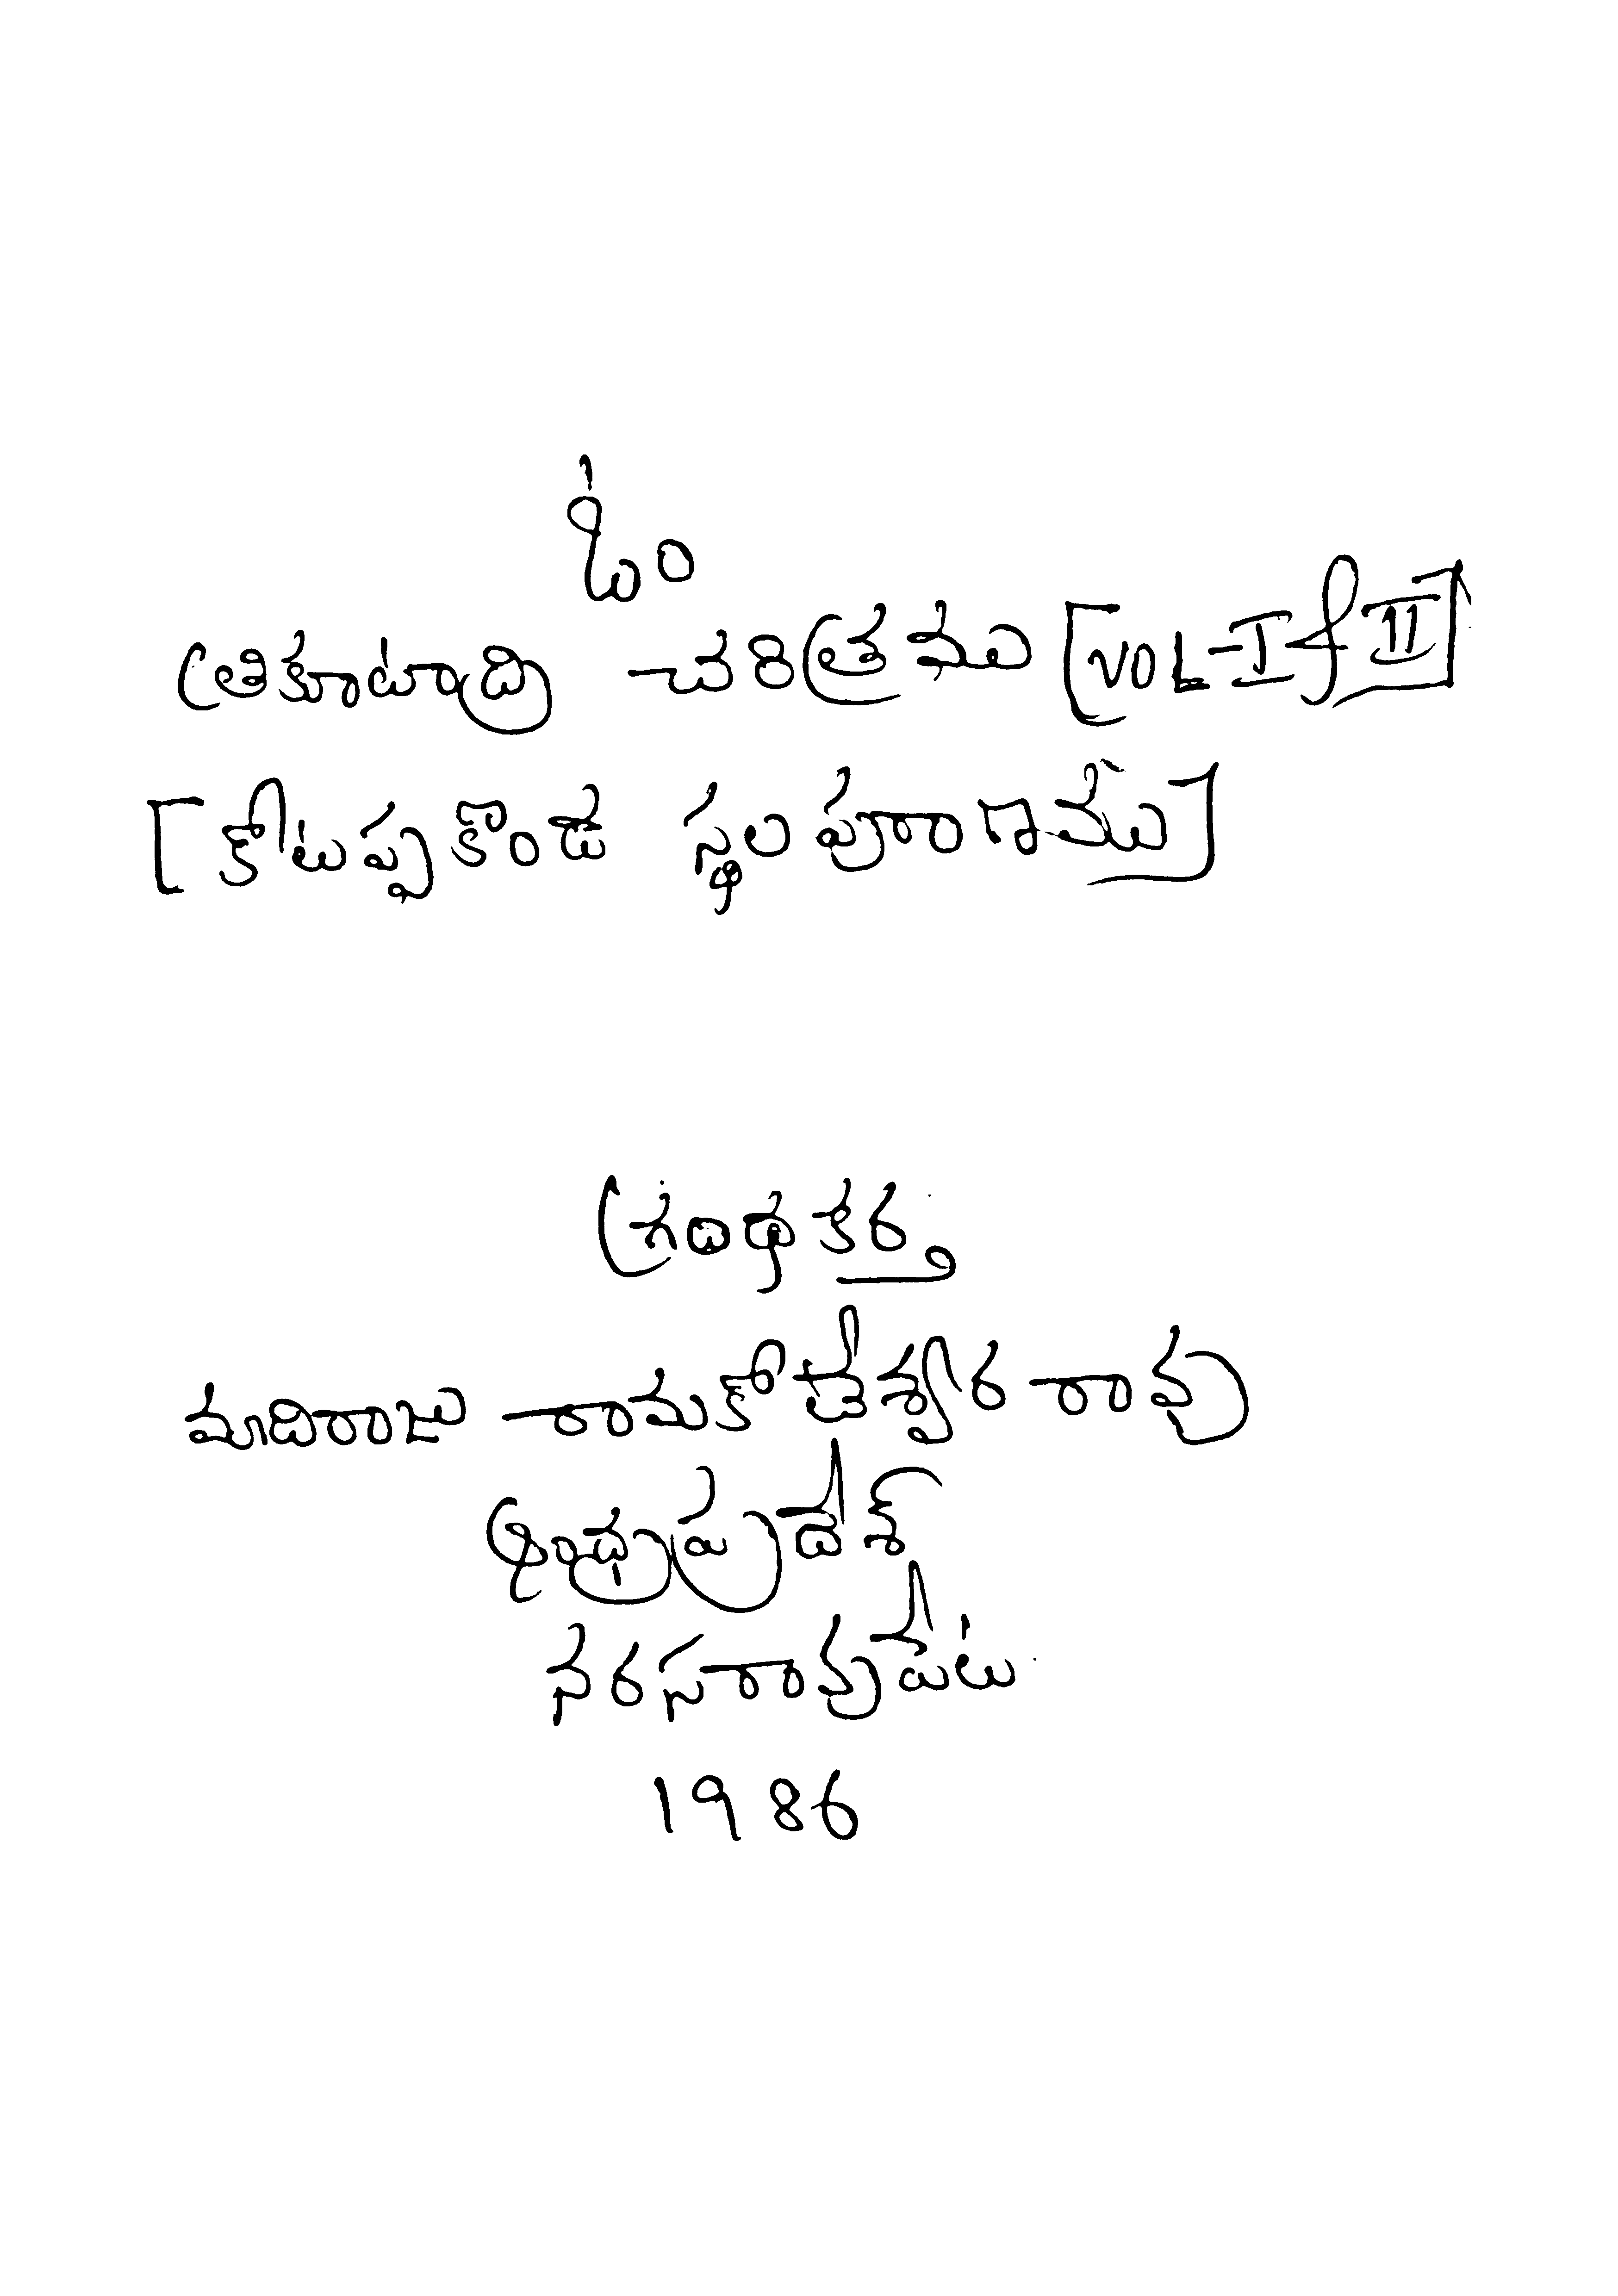 ఓం
త్రికూటాద్రి చరిత్రము [VOL-I & II]
[కోటప్పకొండ స్థలపురాణము]
గ్రంథకర్త
మాదిరాజు రామకోటేశ్వర రావు
ఆంధ్రప్రదేశ్
నరసరావుపేట
1986